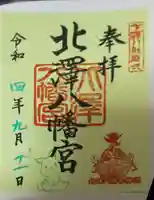 奉拝
北澤八幡宮
令和四年九月十一日